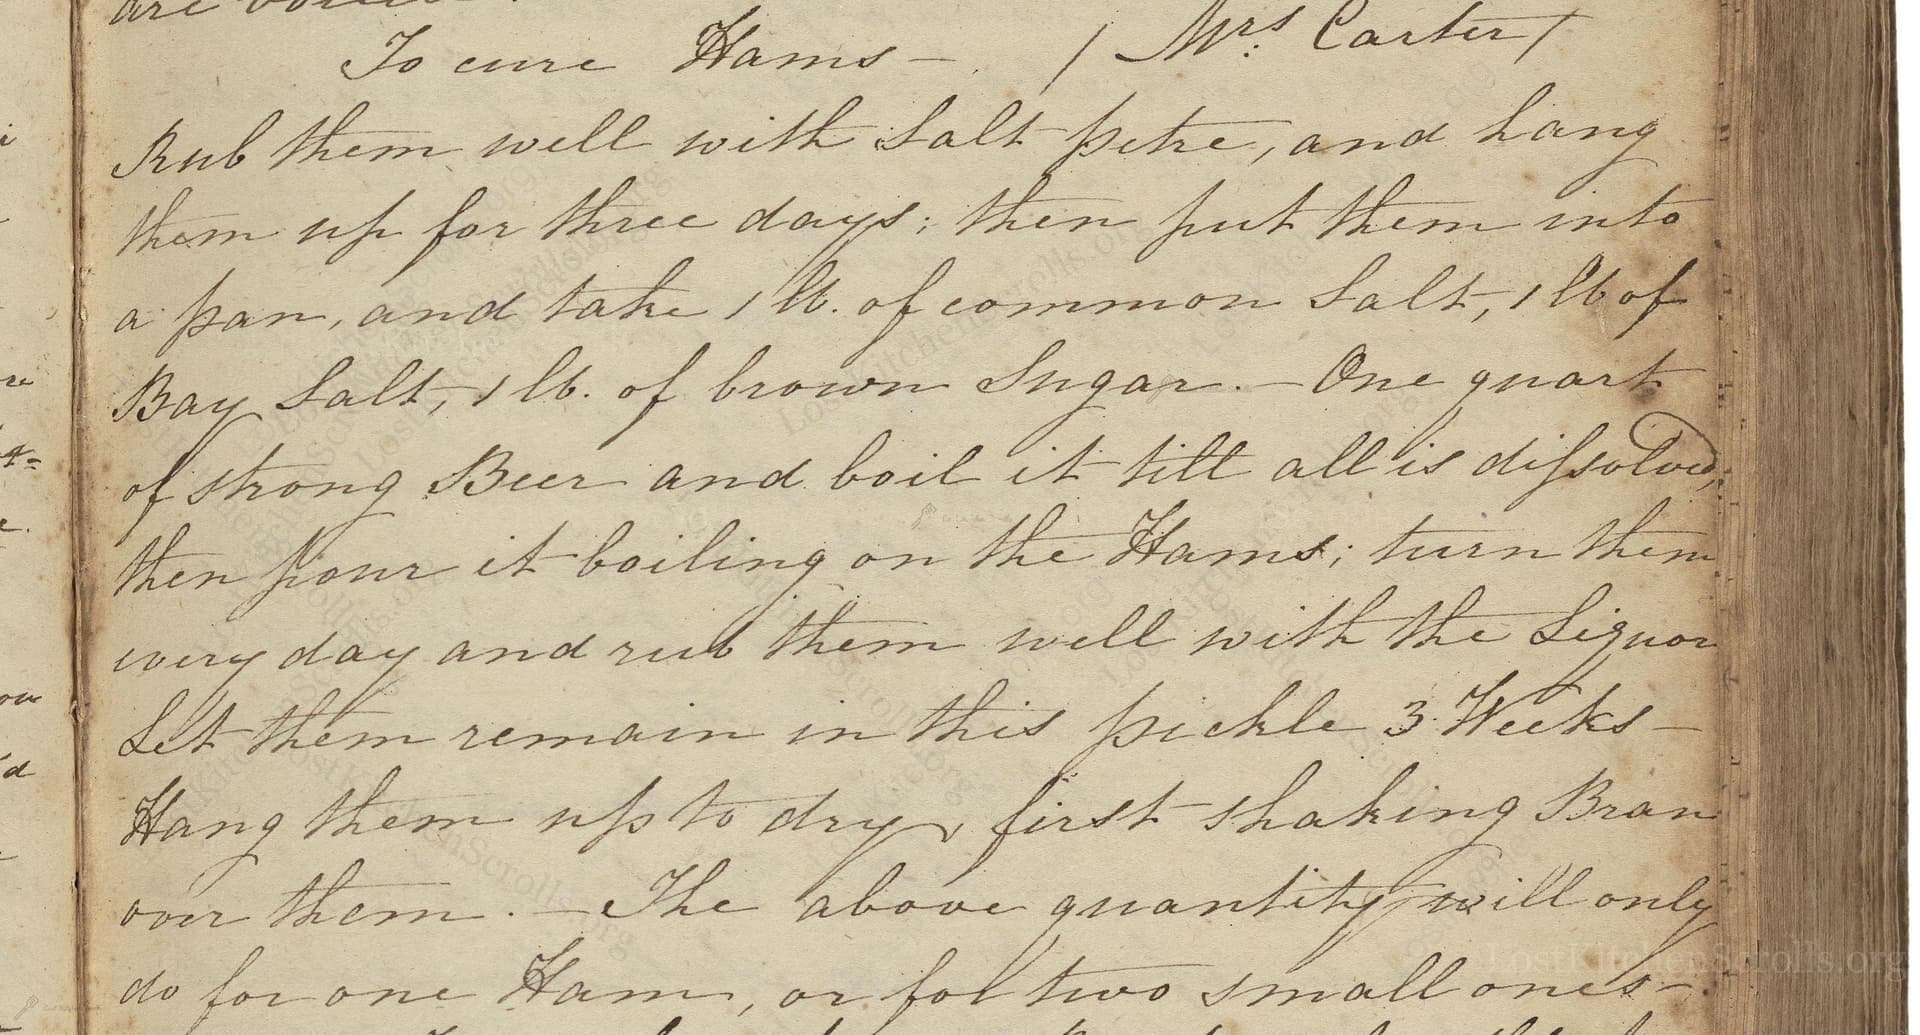 are boiled
To cure Hams — / Mrs. Carter /
Rub them well with Salt petre, and hang
them up for three days; then put them into
a pan, and take 1 lb. of common Salt, 1 lb of
Bay Salt, 1 lb. of brown Sugar. — One quart
of strong Beer and boil it till all is difsolved,
then pour it boiling on the Hams; turn them
every day and rub them well with the Liquor
Let them remain in this pickle 3 Weeks —
Hang them up to dry, first shaking Bran
over them. — The above quantity will only
do for one Ham, or for two small ones —
LostKitchenScrolls.org